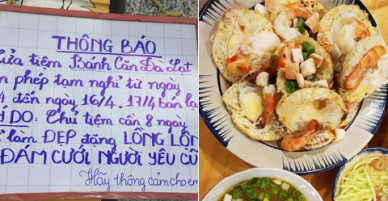 THÔNG BÁO
ửa tiệm Bánh Căn Đà Lạt
n phép tạm nghỉ từ ngày
4 đến ngày 16/4. 17/4 bán lại
DO: Chủ tiệm cần 8 ngày
làm ĐẸP đặng LỒNG LỘN
ĐÁM CƯỚI NGƯỜI YÊU CŨ
Hãy thông cảm cho em